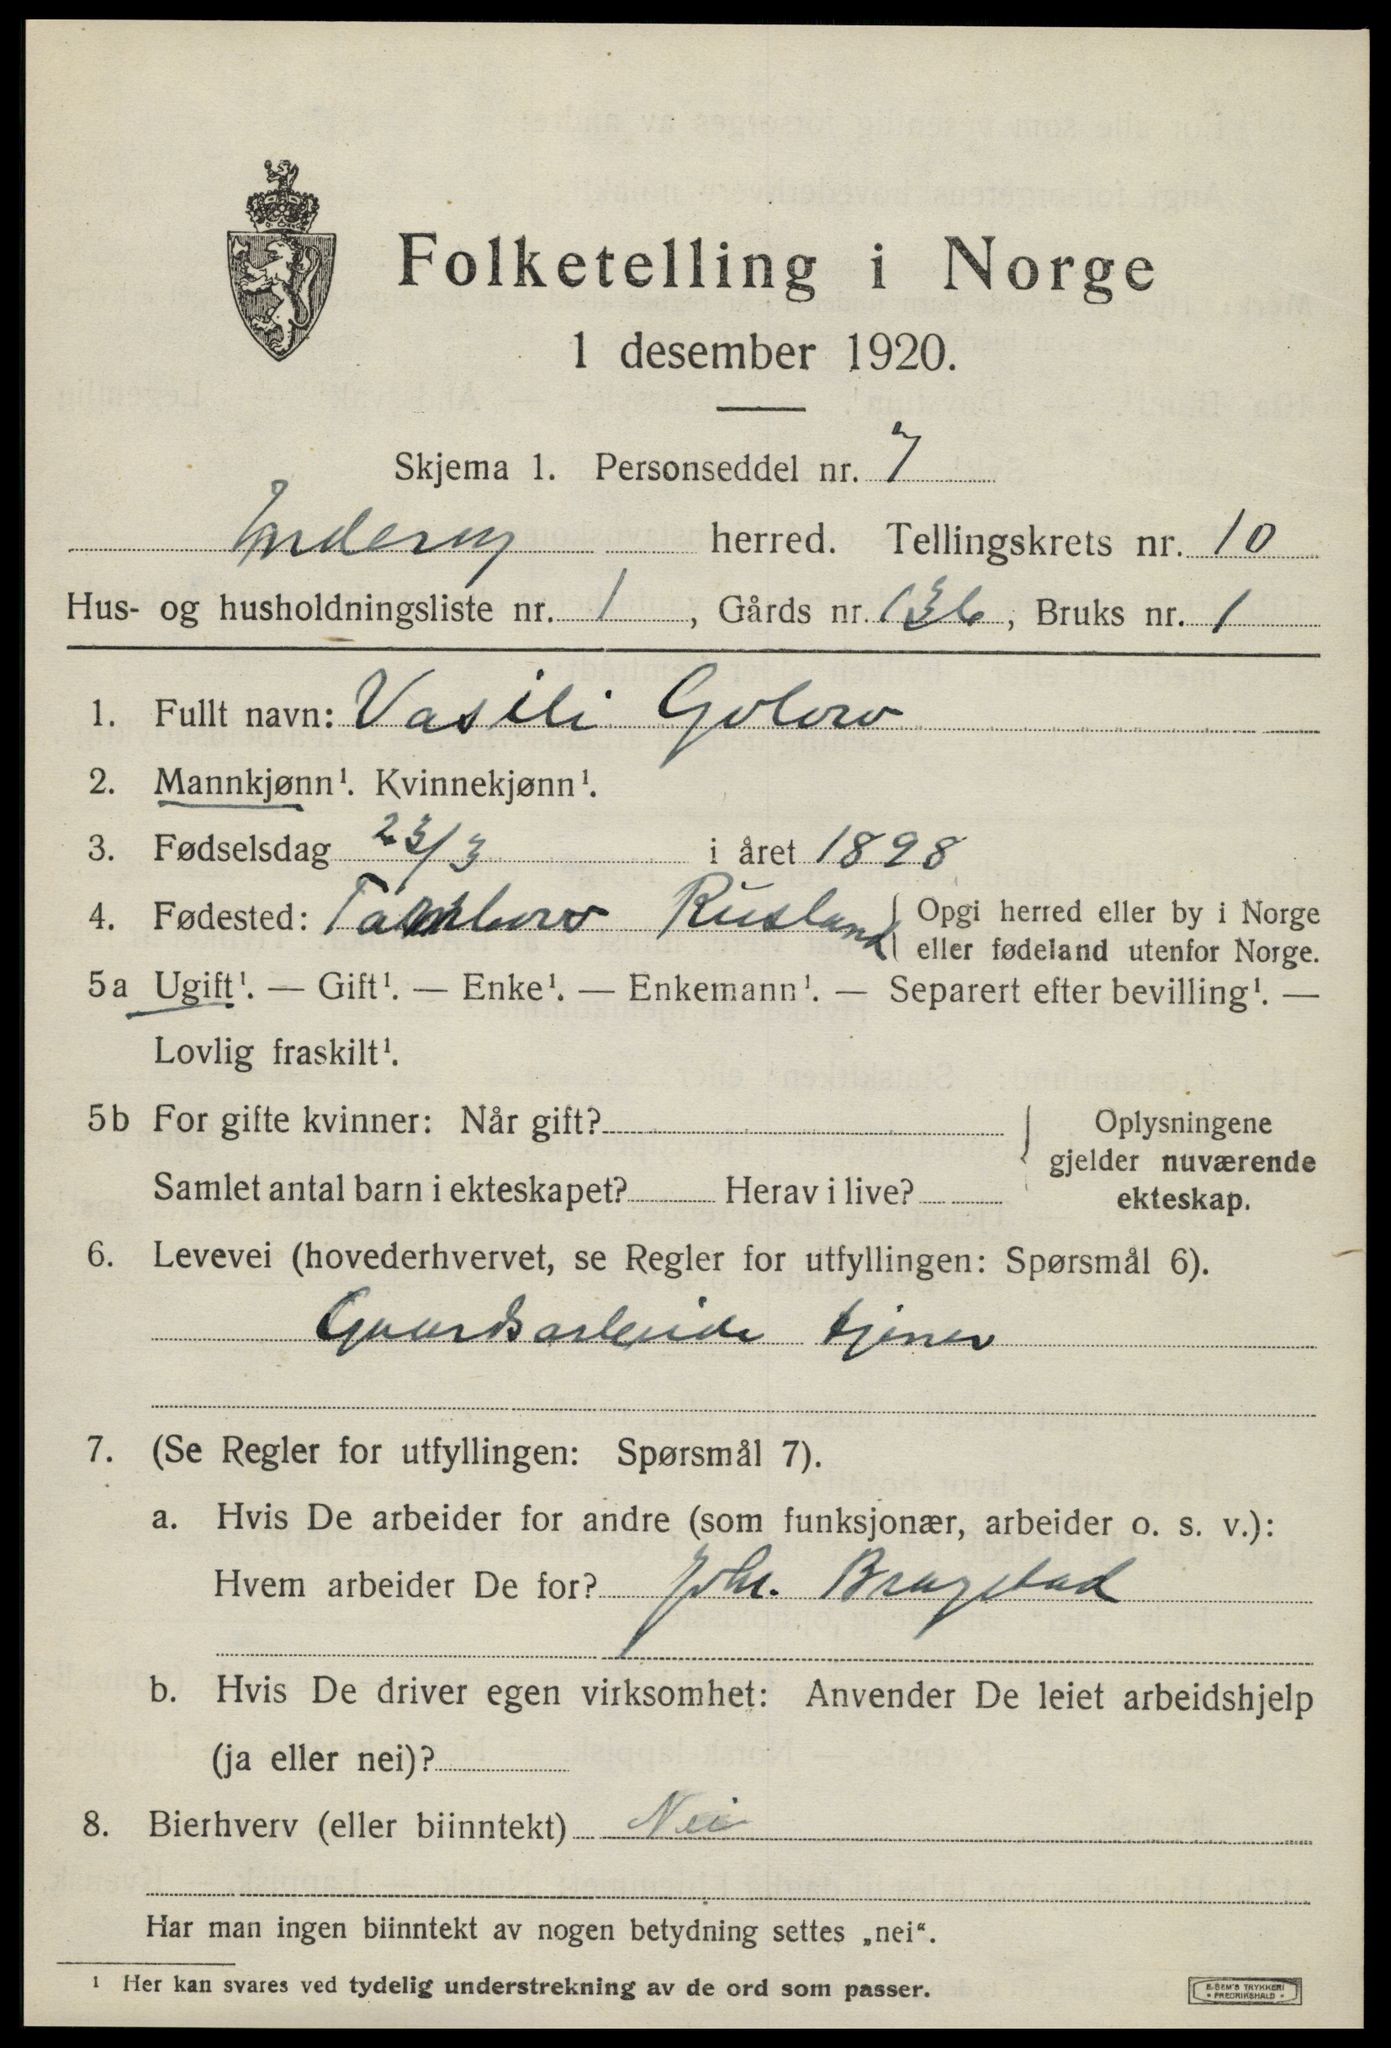 Folketelling i Norge
1 desember 1920.
Skjema 1. Personseddel nr. 7
Inderøy herred. Tellingskrets nr. 10
Hus- og husholdningsliste nr. 1, Gårds nr. 136, Bruks nr. 1
1. Fullt navn: Vasili Golovo
2. Mannkjønn¹. Kvinnekjønn¹.
3. Fødselsdag 23/3 i året 1898
4. Fødested: Tambovo Rusland { Opgi herred eller by i Norge
eller fødeland utenfor Norge.
5a Ugift¹. — Gift¹. — Enke¹. — Enkemann¹. — Separert efter bevilling¹. —
Lovlig fraskilt¹.
5b For gifte kvinner: Når gift? { Oplysningene
gjelder nuværende
Samlet antal barn i ekteskapet? Herav i live? ekteskap.
6. Levevei (hovederhvervet, se Regler for utfyllingen: Spørsmål 6).
Gaardsarbeide tjener
7. (Se Regler for utfyllingen: Spørsmål 7).
a. Hvis De arbeider for andre (som funksjonær, arbeider o. s. v.):
Hvem arbeider De for? Johs. Bragstad
b. Hvis De driver egen virksomhet: Anvender De leiet arbeidshjelp
(ja eller nei)?
8. Bierhverv (eller biinntekt) Nei
Har man ingen biinntekt av nogen betydning settes „nei“.
¹ Her kan svares ved tydelig understrekning av de ord som passer.
E. SEM'S TRYKKERI
FREDRIKSHALD